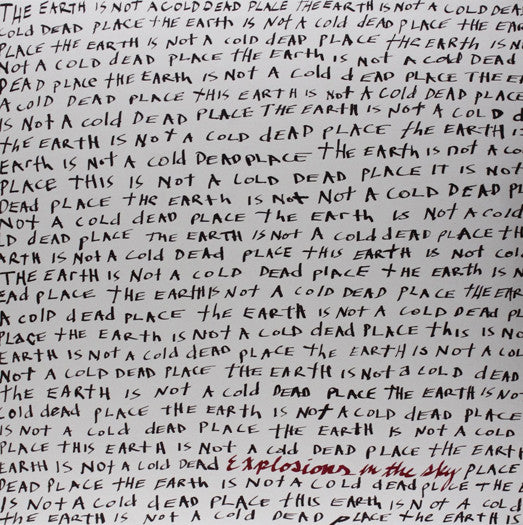 THE EARTH IS NOT A COLD DEAD PLACE THE EARTH IS NOT A COLD DEA
COLD DEAD PLACE THE EARTH IS NOT A COLD dEAD PLACE THE EAR
PLACE THE EARTH IS NOT A COLD DEAD PLACE THE EARTH IS N
NOT A COLD DEAD PLACE THE EARTH IS NOT A COLD DEAD
DEAD PLACE THE EARTH IS NOT A COld dEAD PLACE THE EA
A COID DEAD PLACE THIS EARTH IS NOT A COLD DEAD PLACE
IS NOT A COLD DEAD PLACE THE EARTH IS NOT A COLD d
tHE EARTH IS NOT A COLD dEAD PLACE tHE EARTH IS
EARTH IS NOT A COLD DEAD PLACE tHE EARTH IS NOT A CO
PLACE THIS IS NOT A COLD DEAD PLACE IT IS NOT
DEAD PLACE THE EARTH IS NOT NOT A COLD DEAD PL
NOT A COLD DEAD PLACE THE EARTH IS NOT A COLD
LD dEAD PLACE THE EARTH IS NOT A COLD dEAD PLACE TH
ARTH IS NOT A COLD DEAD PLACE THIS EARTH IS NOT COL
THE EARTH IS NOT A COLD DEAD PLACE THE EARTH IS N
EAd PLACE THE EARTH IS NOT A COLD DEAD PLACE THE EAR
A COLD dEAD PLACE tHE EARTH IS NOT A COLD DEAD PL
PLACE tHE EARTH IS NOT A COLD DEAD PLACE THIS IS NO
EARTH IS NOT A COLD DEAD PLACE THE EARTH IS NOT A COL
NOT A COLD DEAD PLACE THE EARTH IS NOT A COLD DEAD
tHE EARTH IS NOT A COLD DEAD PLACE THE EARTH IS NO
COLD dEAD PLACE THE EARTH IS NOT A COLD DEAD PLACE
IS NOT A COLD dEAD PLACE THE EARTH IS NOT A COLD
PLACE THIS EARTH IS NOT A COLD DEAD PLACE THE EARTH IS
EARTH IS NOT A COLD DEAD Explosions in the sky PLACE
DEAD PLACE THE EARTH IS NOT A COLD dEAD PLACE THE E
IS NOT A COLD DEAD PLACE THIS EARTH IS NOT A COLD
tHE EARTH IS NOT A COLD DEAD PLACE THE EARTH IS